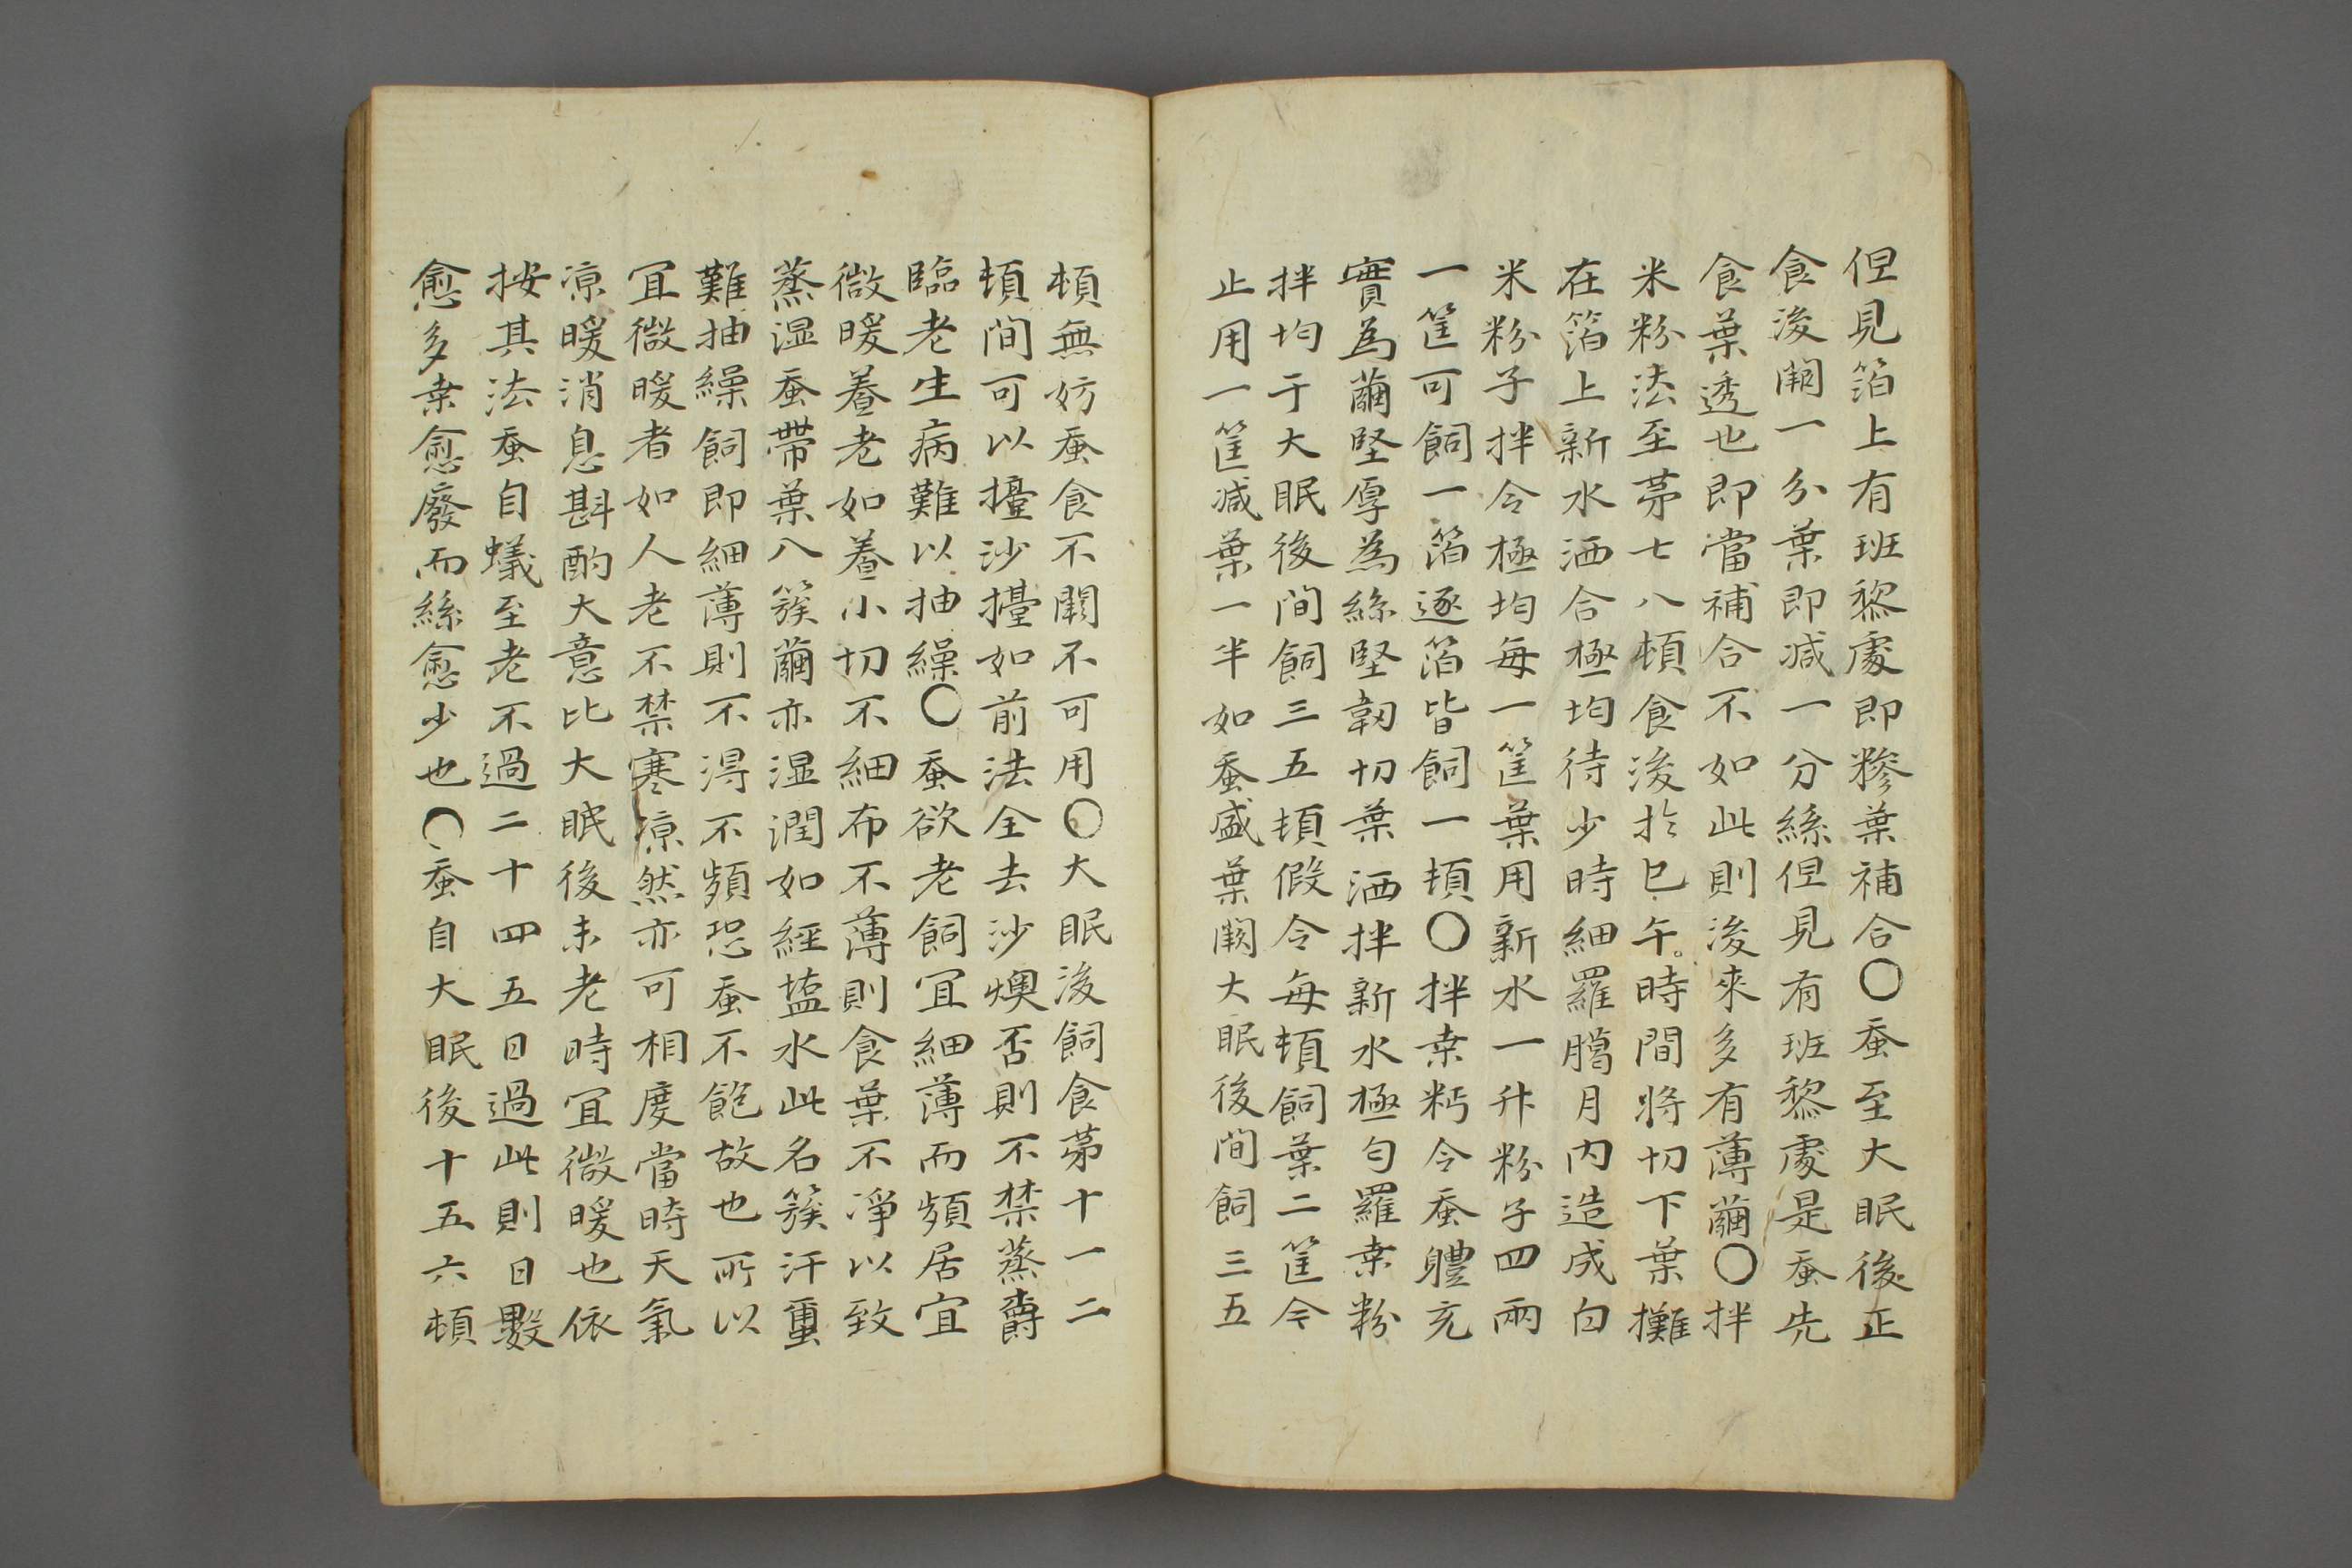 但見箔上有班黎處即糝葉補合〇蚕至大眠後正
食後闕一分葉即减一分絲但見有班黎處是蚕先
食葉透也即當補合不如此則後來多有薄繭〇拌
米粉法至苐七八頓食後於巳午時間將切下葉攤
在箔上新水洒合極均待少時細羅臈月内造成白
米粉子拌令極均每一筐葉用新水一升粉子四兩
一筐可飼一箔逐箔皆飼一頓〇拌桒粆令蚕軆充
實為繭堅厚為絲堅韌切葉洒拌新水極勻羅桒粉
拌均于大眠後間飼三五頓假令每頓飼葉二筐今
止用一筐减葉一半如蚕盛葉闕大眠後間飼三五
頓無妨蚕食不闕不可用〇大眠後飼食苐十一二
頓間可以擡沙擡如前法全去沙燠否則不禁蒸欝
臨老生病難以抽繰〇蚕欲老飼宜細薄而頻居宜
微暖養老如養小切不細布不薄則食葉不凈以致
蒸湿蚕帶葉入簇繭亦湿潤如經塩水此名簇汗蛋
難抽繰飼即細薄則不淂不頻恐蚕不飽故也所以
宜微暖者如人老不禁寒凉然亦可相度當時天氣
凉暖消息斟酌大意比大眠後未老時宜微暖也依
按其法蚕自蟻至老不過二十四五日過此則日數
愈多桒愈廢而絲愈少也〇蚕自大眠後十五六頓